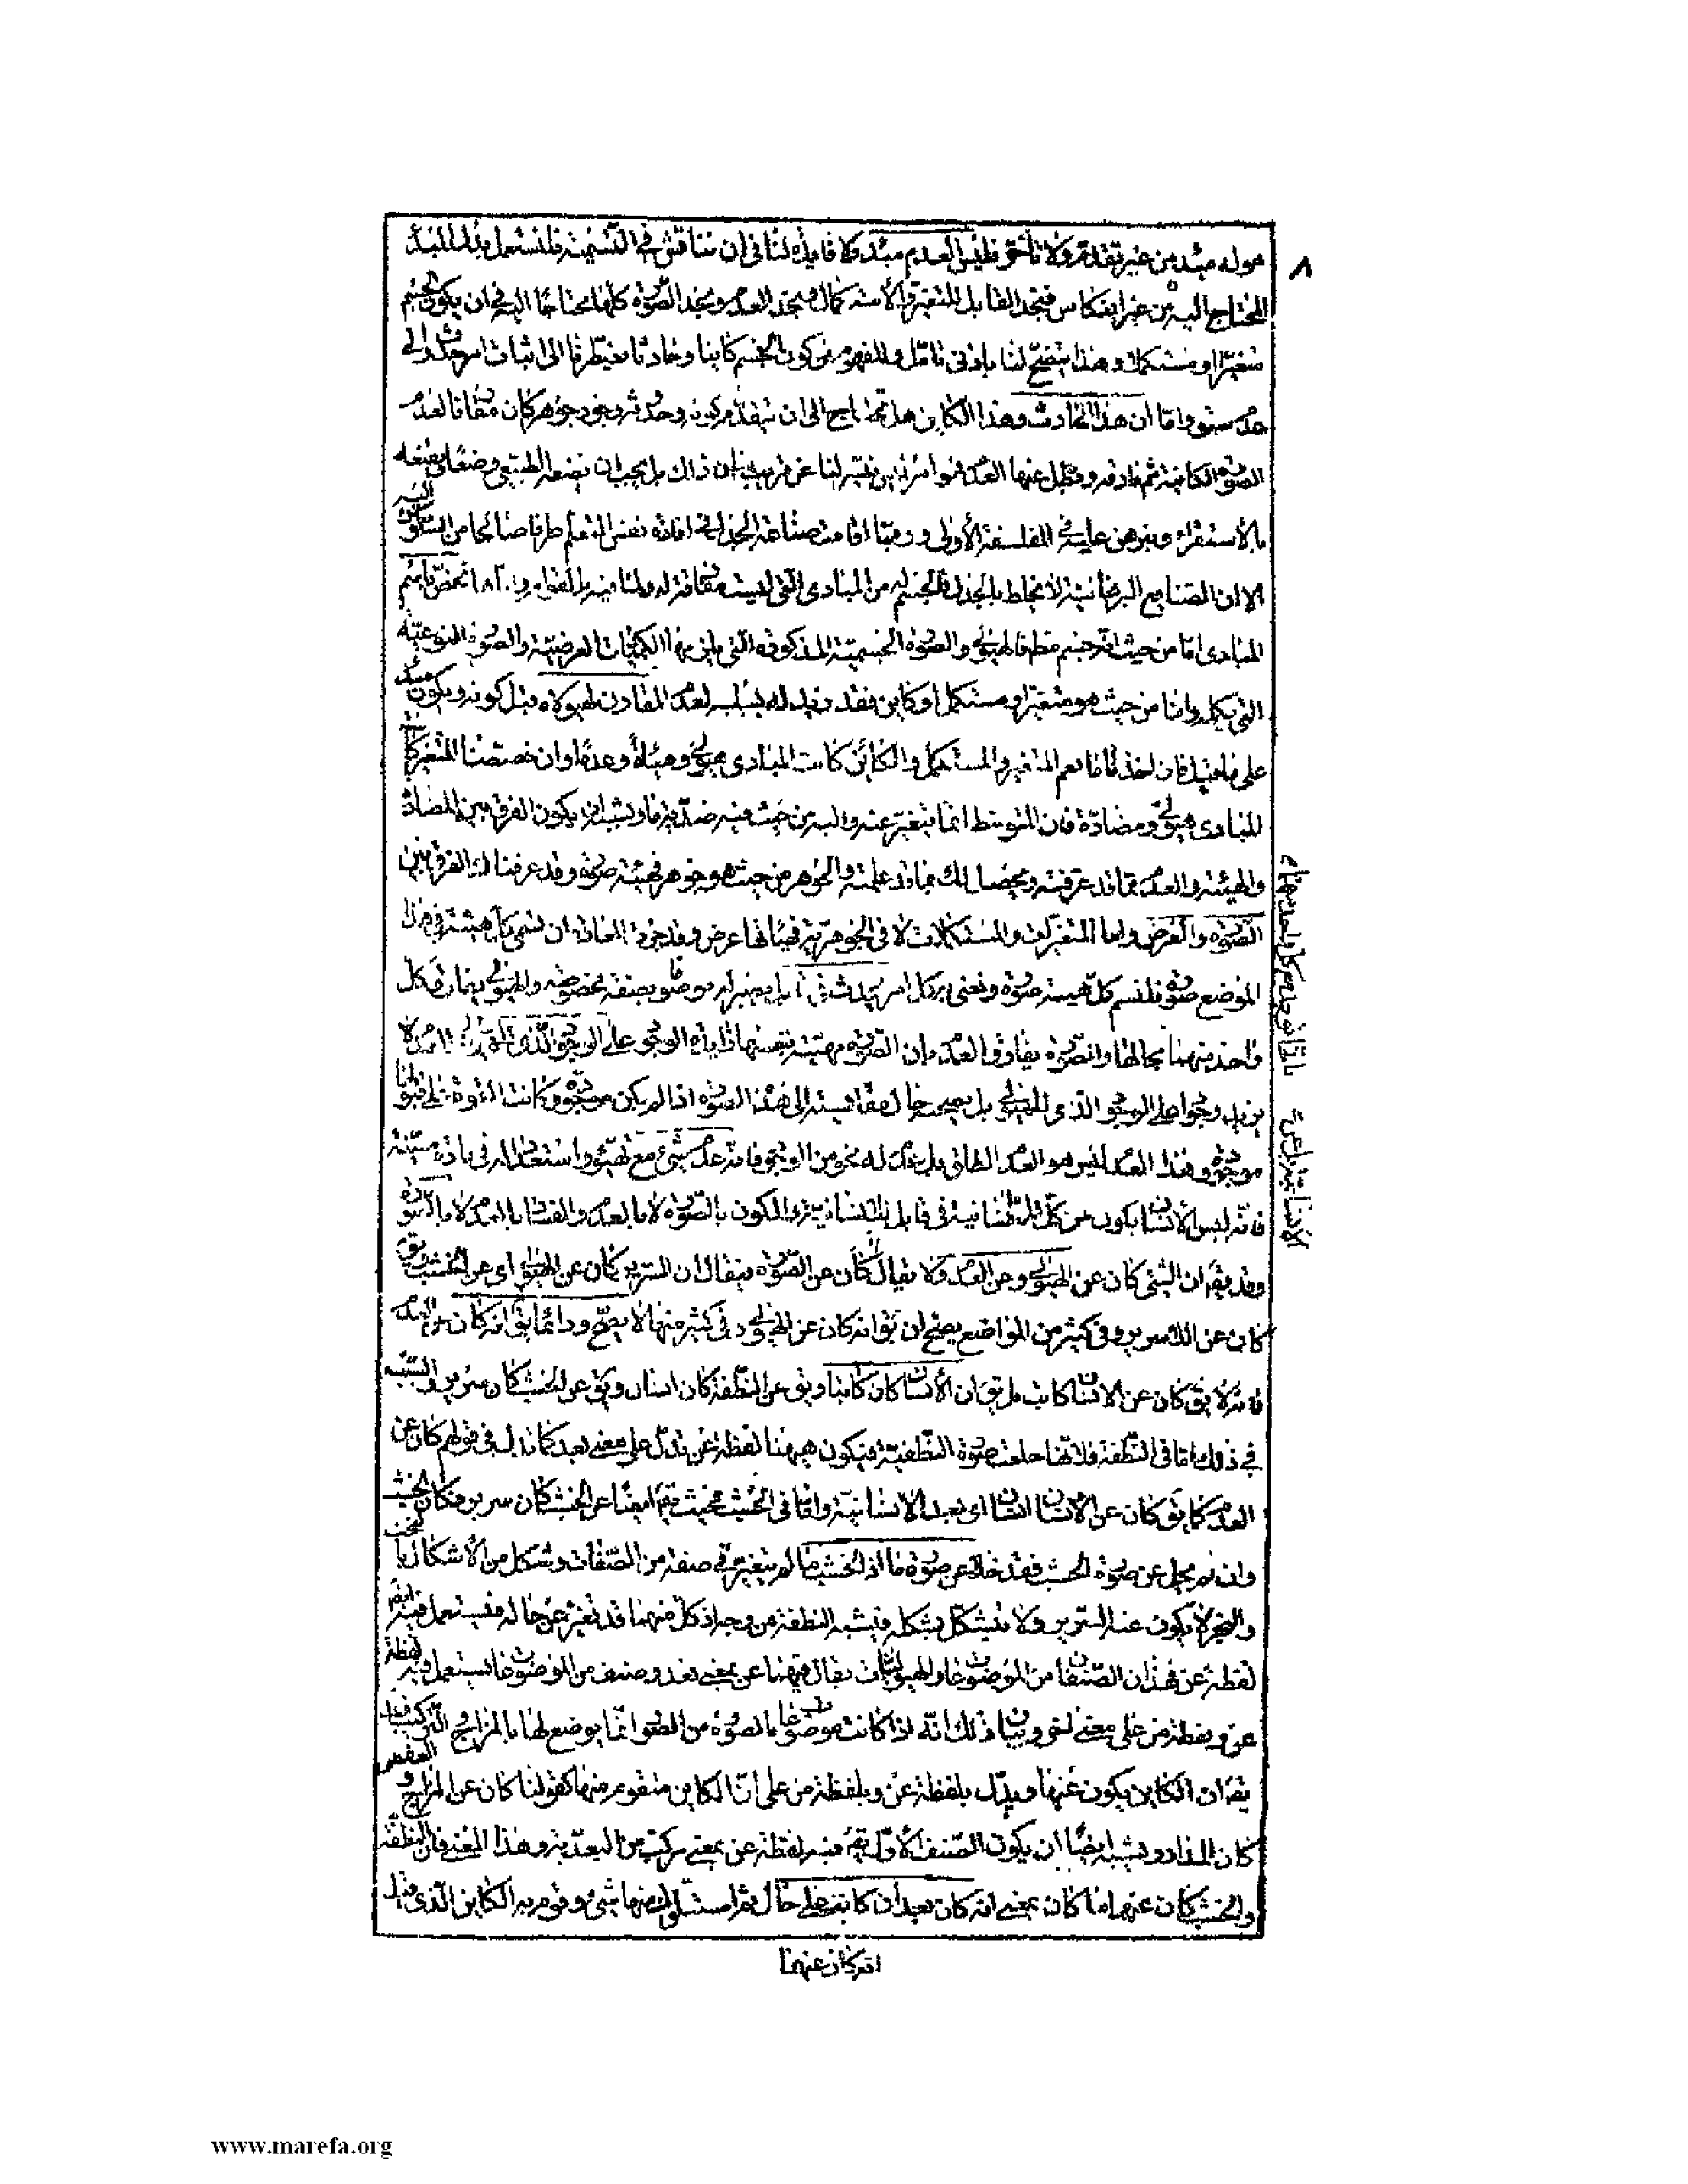 ٨
هو له مبدء من غير تقدم ولا تأخر فليس العدم مبدء ولا فايدة لنا فى ان نناقش فى التسمية فلنستعمل بدل المبدأ
المحتاج اليه من غير انعكاس فنجد القابل للتغير والاستكمال ونجد العدم ونجد الصورة كلها محتاجا اليه فى ان يكون الجسم
متغيرا او مستكملا وهذا يتضح لنا بادنى تامل والمفهوم من كون الجسم كاينا وحادثا يضطرنا الى اثبات امر حدث والى
عدم سبق واما ان هذا الحادث وهذا الكاين هل يحتاج الى ان يتقدم كونه وحدوثه وجود جوهر كان مقارنا لعدم
الصورة الكاينة ثم فارقه وبطل عنها العدم فهو امر ليس يتبين لنا عن قريب بيان ذلك بل يجب ان نضعه للطبيعى وضعا ونقنعه
بالاستقراء ونبرهن عليه فى الفلسفة الاولى وربما اقامت صناعة الجدل فى افادة نفس المتعلم طرفا صالحا من السكون اليه
الا ان الصنايع البرهانية لا تخلط بالجدل فللجسم من المبادى التى ليست مفارقة له ولما فيه بالقوام واياها نخص باسم
المبادى اما من حيث انه جسم مطلقا فالهيولى والصورة الجسمية المذكورة التى يلزمها الكميات العرضية والصورة النوعية
التى تكمله واما من حيث هو متغير او مستكمل او كاين فقد زيد له نسبة العدم المقارن لهيولاه قبل كونه ويكون مبدء
على ما قيل فان اخذنا ما يعم المتغير والمستكمل والكائن كانت المبادى هيولى وهيئة وعدما وان خصصنا المتغير كانت
المبادى هيولى ومضادة فان المتوسط انما يتغير عنه واليه من حيث فيه ضدية ما ويشبه ان يكون الفرق بين المضادة
والهيئة والعدم مما قد عرفته ويحصل لك مما قد علمته والجوهر من حيث هو جوهر فهيئته صورة وقد عرفناك الفرق بين
الصورة والعرض واما المتغيرات والمستكملات لا فى الجوهرية فهيأتها عرض وقد جرت العادة ان تسمى كل هيئة فى هذا
الموضع صورة فلنسم كل هيئة صورة ونعنى به كل امر يحدث فى قابل يصير له موصوفا بصفة مخصوصة والهيولى يفارق كل
واحد منهما بحالها والصورة يفارق العدم بان الصورة مهية بنفسها زايدة الوجود على الوجود الذى للهيولى والعدم لا
يزيد وجودا على الوجود الذى للهيولى بل يصحبه حال مقايسته الى هذه الصورة اذا لم يكن موجودة وكانت القوة على قبولها
موجودة وهذا العدم ليس هو العدم المطلق بل عدم له نحو من الوجود فانه عدم شىء مع تهيؤ واستعداد له فى مادة معينة
فانه ليس الانسان يكون عن كل لا انسانية بل لا انسانية فى قابل للانسانية والكون بالصورة لا بالعدم والفساد بالعدم لا بالصورة
وقد يق ان الشئ كان عن الهيولى وعن العدم ولا يقال كان عن الصورة فيقال ان السرير كان عن الهيولى اى عن الخشب ويق
كان عن اللاسرير وفى كثير من المواضع يصح ان يق انه كان عن الهيولى وفى كثير منها لا يصح ودائما يق انه كان عن العدم
فانه لا يق كان عن الانسان كاتب بل يق ان الانسان كان كاتبا ويق عن النطفة كان انسان ويق عن الخشب كان سرير والسبب
فى ذلك اما فى النطفة فلانها خلعت صورة النطفية فيكون ههنا لفظة عن تدل على معنى بعد كما تدل فى قولهم كان عن
العدم كما يق كان عن اللاانسان انسان اى بعد اللاانسانية واما فى الخشب فحيث يق ايضا عن الخشب كان سرير فكان الخشب
وان لم يخل عن صورة الخشب فقد خلا عن صورة ما اذ الخشب ما لم يتغير فى صفة من الصفات وشكل من الاشكال بالنحت
والنجر لا يكون عنه السرير ولا يتشكل بشكله فيشبه النطفة من وجه اذ كل منهما قد تغير عن حاله فيستعمل فيه ايضا
لفظة عن فهذان الصنفان من الموضوعات والهيوليات يقال فيهما عن بمعنى بعد وصنف من الموضوعات يستعمل فيه لفظة
عن ولفظة من على معنى اخر وبيان ذلك انه اذا كانت موضوعات ما لصورة من الصور انما يوضع لها بالمزاج والتركيب فقد
يق ان الكاين يكون عنها ويدل بلفظة عن وبلفظة من على ان الكاين متقوم منها كقولنا كان عن الزاج والعفص
كان المداد ويشبه ايضا ان يكون الصنف الاول يق فيه لفظة عن بمعنى مركب من البعدية وهذا المعنى فان النطفة
والخشب كان عنهما ما كان بمعنى انه كان بعد ان كانا على حال ثم استل منهما شىء وقوم به الكاين الذى قيل
انه كان عنهما